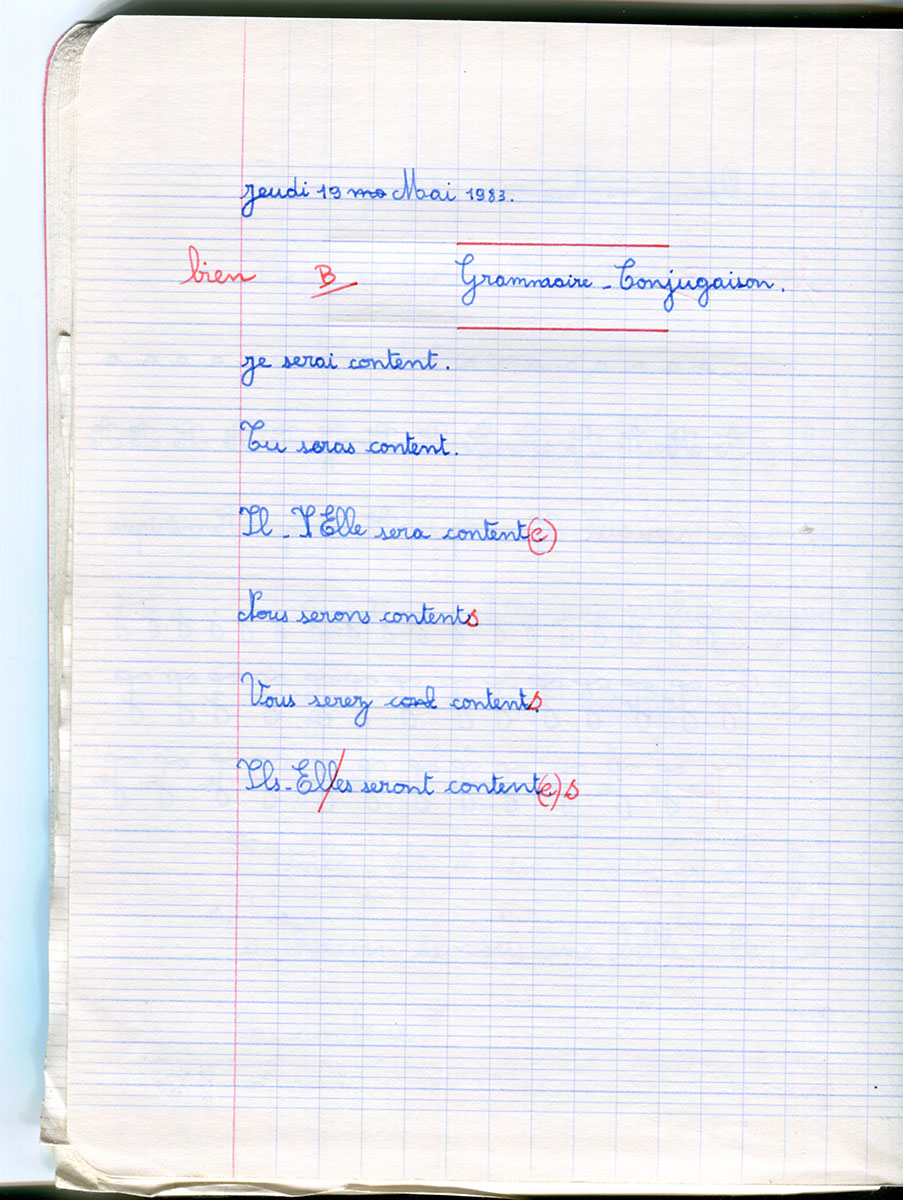 jeudi 19 mo Mai 1983.
bien B Grammaire - Conjugaison.
je serai content.
Tu seras content.
Il - Elle sera content(e)
Nous serons contents
Vous serez cont contents
Ils - Elles seront content(e)s